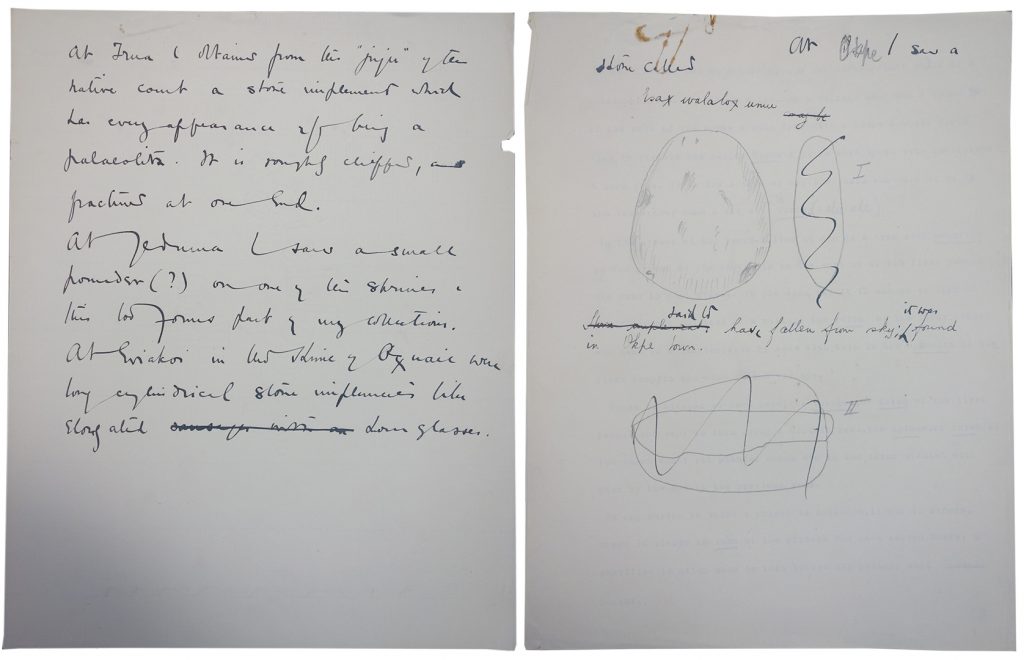 At Irrua I obtained from the "juju" of the
native court a stone implement which
has every appearance of being a
palaeolith. It is roughly chipped, and
fractured at one end.
At Jeduma I saw a small
pounder (?) on one of the shrines &
this too forms part of my collections.
At Eviakoi in the shrine of were
long cylindrical stone implements like
elongated sausages with an dour glasses.
At Okpe I saw a
stone called
Esax walalox unu may be
I
Stone implements said to have fallen from sky; it was found
in Okpe town.
II